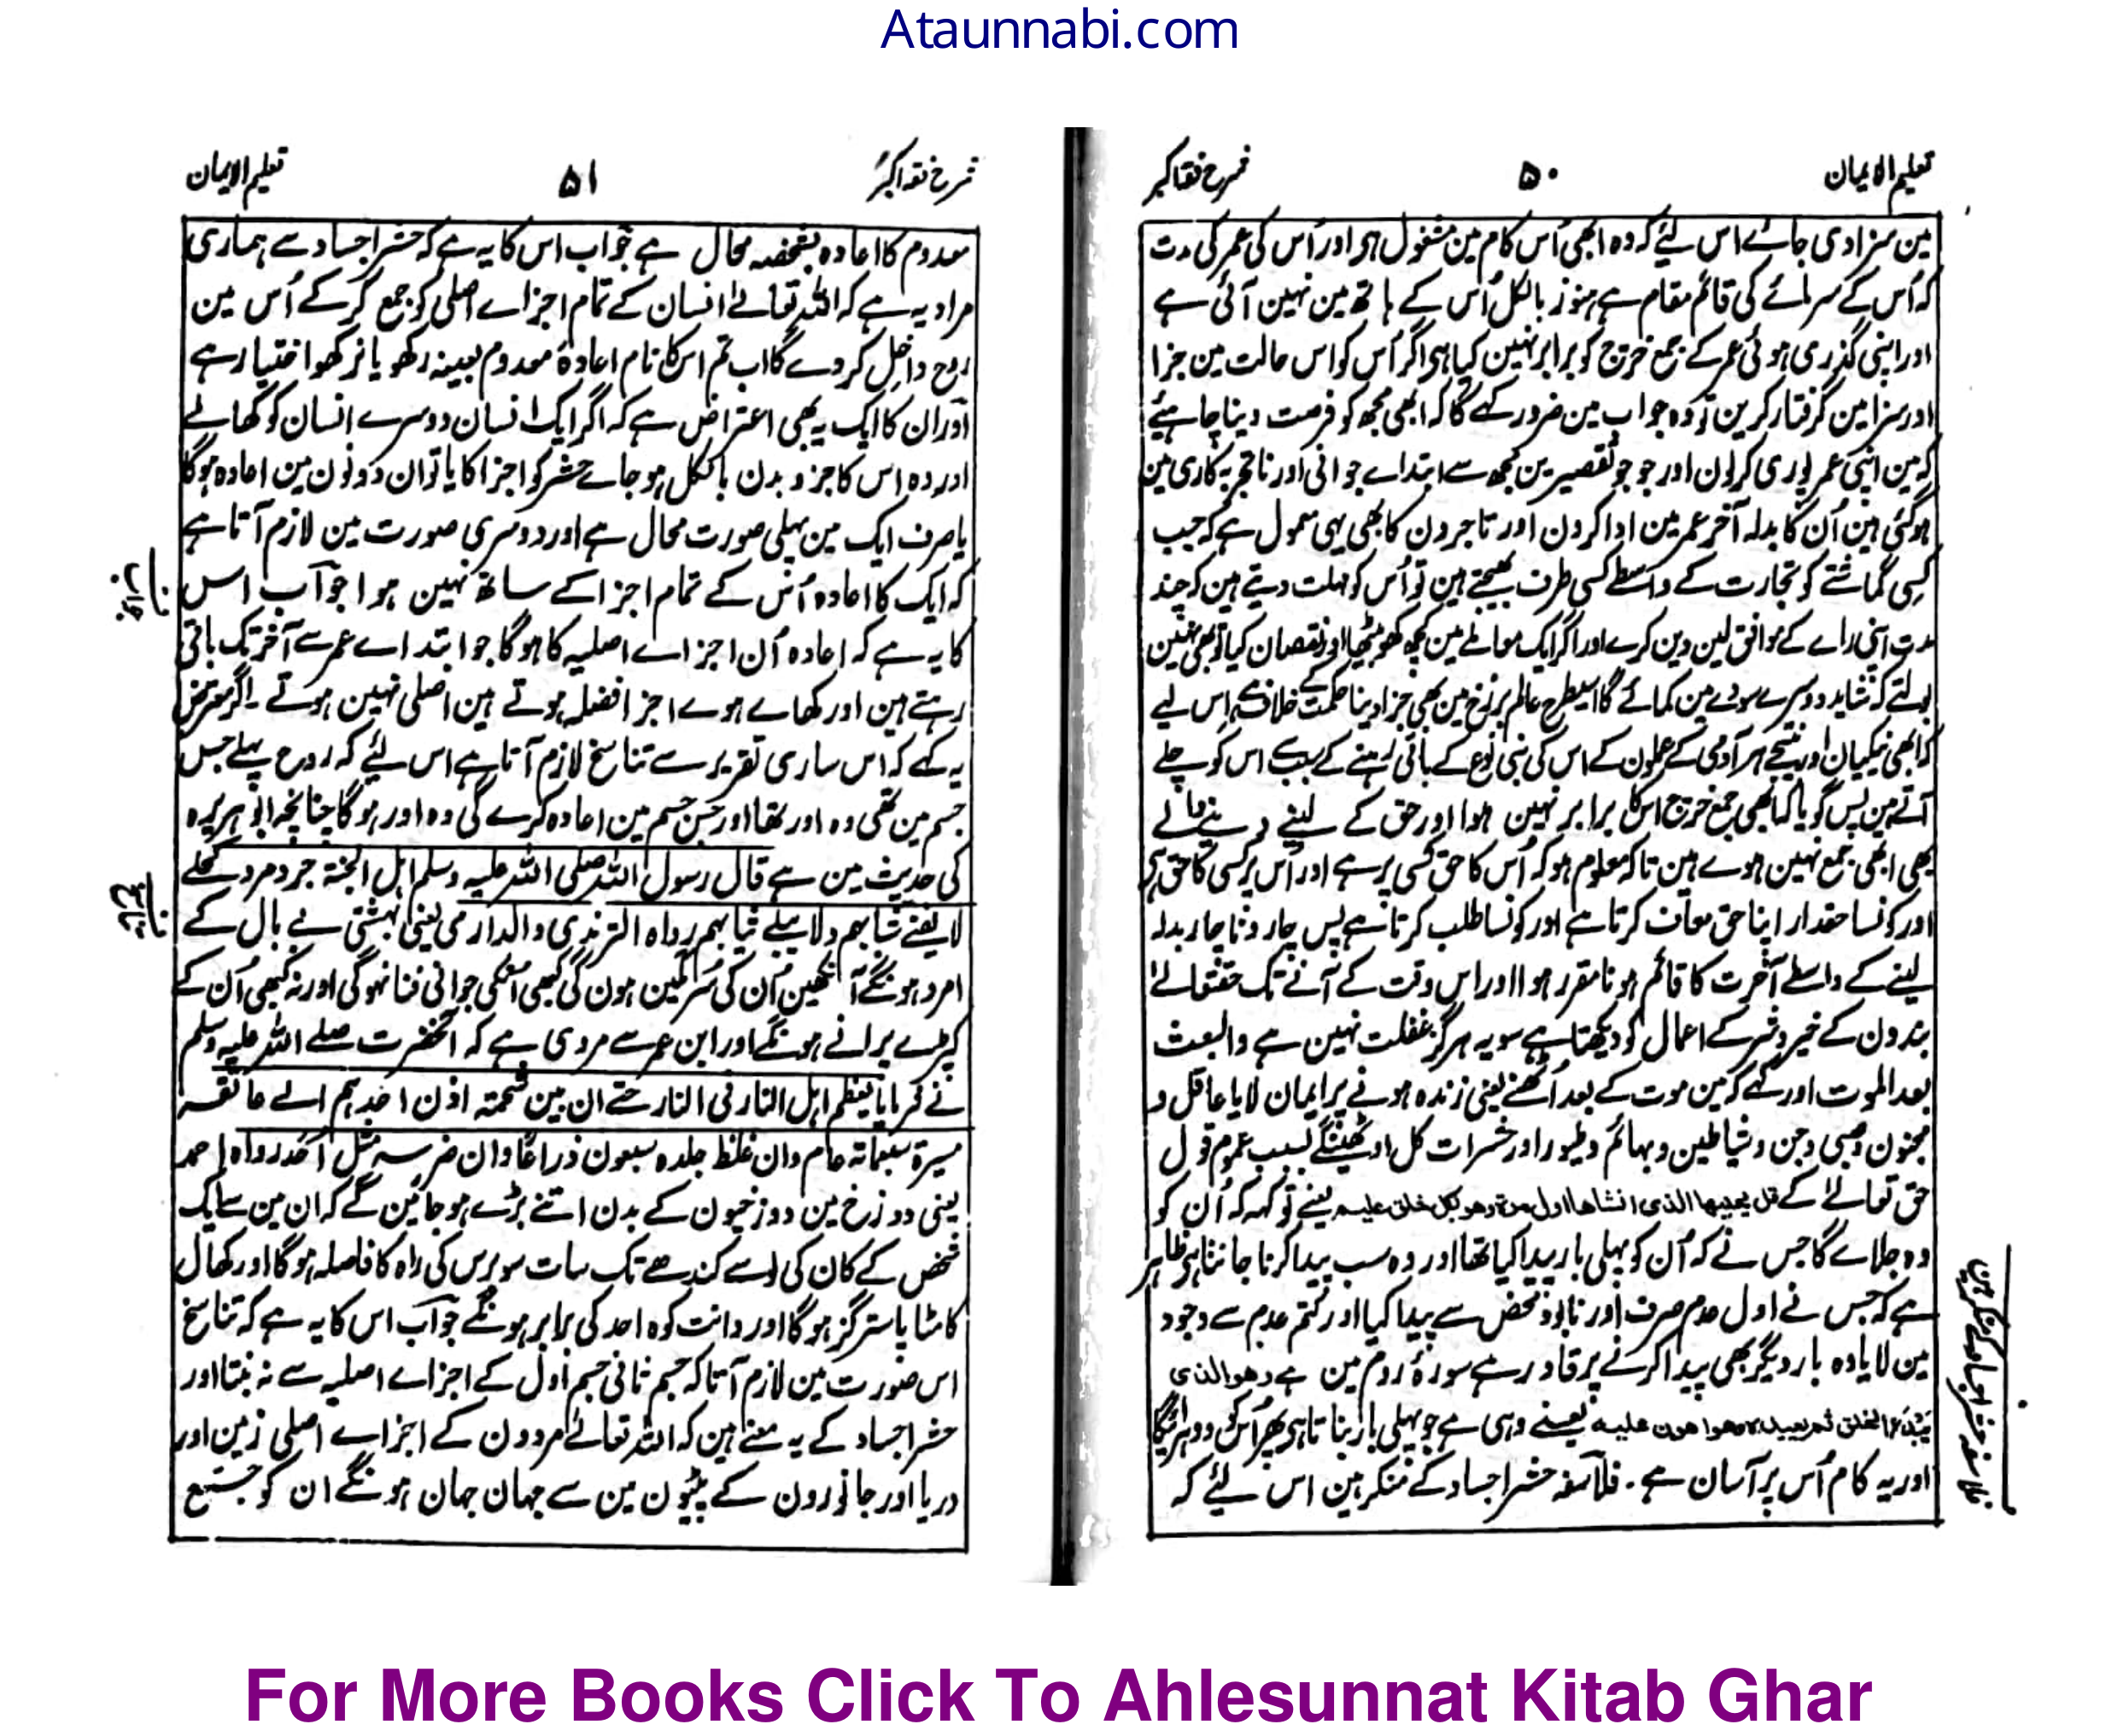 Ataunnabi.com
تعلیم الایمان ۵۰ شرح فقہ اکبر
مین سزا دی جائے اس لئے کہ وہ ابھی اُس کام مین مشغول ہی اور اُس کی عمر کی مدت
کہ اُس کے سرمائے کی قائم مقام ہے ہنوز بالکل اُس کے ہاتھ مین نہین آئی ہے
اور اپنی گذری ہوئی عمر کے جمع خرچ کو برابر نہین کیا ہی اگر اُس کو اس حالت مین جزا
اور سزا مین گرفتار کرین تو وہ جواب مین ضرور کہے گا کہ ابھی مجھ کو فرصت دینا چاہیئے
کہ مین اپنی عمر پوری کر لون اور جو جو تقصیرین مجھ سے ابتداے جوانی اور ناتجربہ کاری مین
ہوگئی ہین اُن کا بدلہ آخر عمر مین ادا کرون اور تاجرون کا بھی یہی معمول ہے کہ جب
کسی گماشتے کو تجارت کے واسطے کسی طرف بھیجتے ہین تو اُس کو مہلت دیتے ہین کہ چند
مدت اپنی راے کے موافق لین دین کرے اور اگر ایک معاملے مین کچھ کھو بیٹھا اور نقصان کیا تو بھی نہین
بولتے کہ شاید دوسرے سودے مین کمائے گا اسیطرح عالم برزخ مین بھی جزا دینا حکمت کے خلاف ہے اس لیے
کہ ابھی نیکیان اور نتیجے ہر آدمی کے عملون کے اس کی بنی نوع کے باقی رہنے کے سبب اس کو چلے
آتے ہین پس گویا کہ ابھی جمع خرچ اس کا برابر نہین ہوا اور حق کے لینے دینے والے
بھی ابھی جمع نہین ہوے ہین تاکہ معلوم ہو کہ اُس کا حق کسی پر ہے اور اُس پر کسی کا حق ہی
اور کونسا حقدار اپنا حق معاف کرتا ہے اور کونسا طلب کرتا ہے پس چار و ناچار بدلہ
لینے کے واسطے آخرت کا قائم ہونا مقرر ہوا اور اس وقت کے آنے تک حقتعالےٰ
بندون کے خیر و شر کے اعمال کو دیکھتا ہے سو یہ ہرگز غفلت نہین ہے والبعث
بعد الموت اور کہے کہ مین موت کے بعد اُٹھنے یعنی زندہ ہونے پر ایمان لایا عاقل و
مجنون و صبی و جن و شیاطین و بہائم و طیور اور حشرات کل اوٹھینگے بسبب عموم قول
حق تعالےٰ کے قل یحییھا الذی انشاھا اول مرۃ وھو بکل خلق علیم یعنے تو کہہ کہ اُن کو
وہ جلاے گا جس نے کہ اُن کو پہلی بار پیدا کیا تھا اور وہ سب پیدا کرنا جانتا ہی ظاہر
ہے کہ جس نے اول عدم صرف اور نابود محض سے پیدا کیا اور کتم عدم سے وجود
مین لایا وہ بار دیگر بھی پیدا کرنے پر قادر ہے سورۂ روم مین ہے وھو الذی
یبدؤا الخلق ثم یعیدہ وھو اھون علیہ یعنے وہی ہے جو پہلی بار بناتا ہی پھر اُس کو دوہرائیگا
اور یہ کام اُس پر آسان ہے۔ فلاسفہ حشر اجساد کے منکر ہین اس لئے کہ
شرح فقہ اکبر ۵۱ تعلیم الایمان
معدوم کا اعادہ بشخصہ محال ہے جواب اس کا یہ ہے کہ حشر اجساد سے ہماری
مراد یہ ہے کہ اللہ تعالےٰ انسان کے تمام اجزاے اصلی کو جمع کر کے اُس مین
روح داخل کر دے گا اب تم اس کا نام اعادۂ معدوم بعینہ رکھو یا نہ رکھو اختیار ہے
اور ان کا ایک یہ بھی اعتراض ہے کہ اگر ایک انسان دوسرے انسان کو کھالے
اور وہ اس کا جزو بدن بالکل ہو جاے حشر کو اجزا کا یا تو ان دونون مین اعادہ ہوگا
یا صرف ایک مین پہلی صورت محال ہے اور دوسری صورت مین لازم آتا ہے
کہ ایک کا اعادہ اُس کے تمام اجزا کے ساتھ نہین ہوا جواب اس
کا یہ ہے کہ اعادہ اُن اجزاے اصلیہ کا ہوگا جو ابتداے عمر سے آخر تک باقی
رہتے ہین اور کھاے ہوے اجزا فضلہ ہوتے ہین اصلی نہین ہوتے۔ اگر معترض
یہ کہے کہ اس ساری تقریر سے تناسخ لازم آتا ہے اس لئے کہ روح پہلے جس
جسم مین تھی وہ اور تھا اور جس جسم مین اعادہ کرے گی وہ اور ہوگا چنانچہ ابو ہریرہ
کی حدیث مین ہے قال رسول اللہ صلی اللہ علیہ وسلم اہل الجنۃ جرد مرد کحلے
لا یفنے شبابہم ولا یبلے ثیابہم رواہ الترمذی والدارمی یعنی بہشتی بے بال کے
امرد ہونگے آنکھین اُن کی سُرمگین ہون گی کبھی اُنکی جوانی فنا نہوگی اور نہ کبھی اُن کے
کپڑے پرانے ہونگے اور ابن عمر سے مروی ہے کہ آنحضرت صلے اللہ علیہ وسلم
نے فرمایا یعظم اہل النار فی النار حتے ان بین شحمتہ اذن احدہم الے عاتقہ
مسیرۃ سبعمائۃ عام وان غلظ جلدہ سبعون ذراعًا وان ضرسہ مثل احد رواہ احمد
یعنی دوزخ مین دوزخیون کے بدن اتنے بڑے ہو جائین گے کہ ان مین سے ایک
شخص کے کان کی لو سے کندھے تک سات سو برس کی راہ کا فاصلہ ہوگا اور کھال
کا مٹاپا ستر گز ہوگا اور دانت کوہ احد کی برابر ہونگے جواب اس کا یہ ہے کہ تناسخ
اس صورت مین لازم آتا کہ جسم ثانی جسم اول کے اجزاے اصلیہ سے نہ بنتا اور
حشر اجساد کے یہ معنے ہین کہ اللہ تعالےٰ مردون کے اجزاے اصلی زمین اور
دریا اور جانورون کے پیٹون مین سے جہان جہان ہونگے ان کو مجتمع
For More Books Click To Ahlesunnat Kitab Ghar